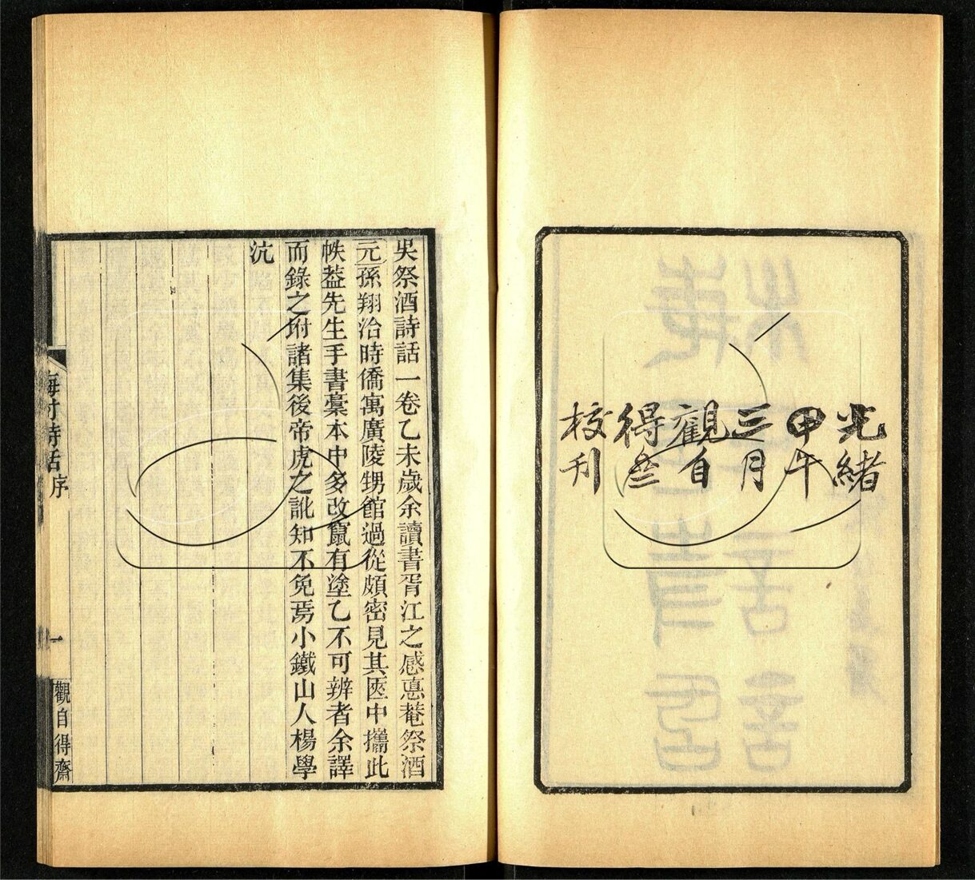 光緒
甲午
三月
觀自
得叁
校刊
吳祭酒詩話一卷乙未歲余讀書胥江之感悳菴祭酒
元孫翔洽時僑寓廣陵甥館過從頗密見其匧中攜此
帙葢先生手書藁本中多改竄有塗乙不可辨者余譯
而錄之附諸集後帝虎之訛知不免焉小鐵山人楊學
沆
梅村詩話序
一
觀自得齋